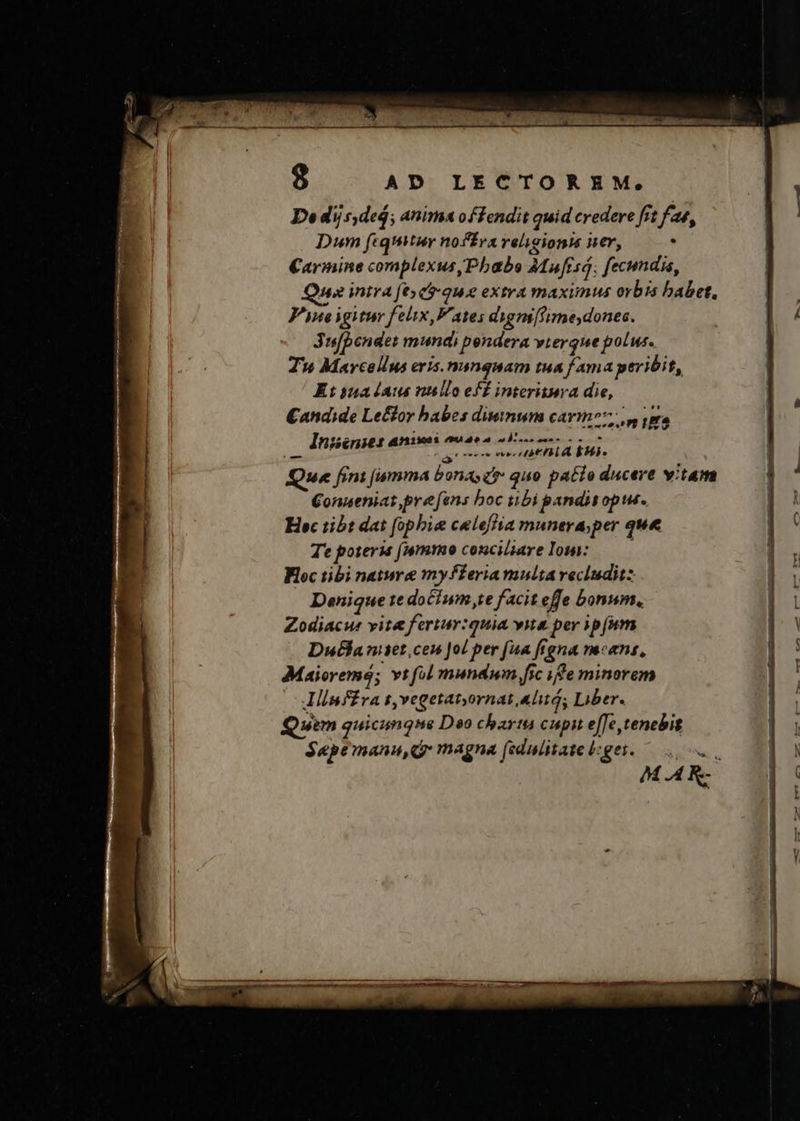 8 AD LECTOREM.
De dijs, deq́; anima ostendit quid credere sit fas,
Dum sequitur nostra religionis iter,
Carmine complexus, Phœbo Musisq́; secundis,
Quæ intra se, & quæ extra maximus orbis habet.
Viue igitur felix, Vates dignissime, donec
Suspendet mundi pondera vterque polus.
Tu Marcellus eris. nunquam tua fama peribit,
Et tua laus nullo est interitura die,
Candide Lector habes diuinum
Inuenies animi
Quæ sint summa bona, & quo pacto ducere vitam
Conueniat, præsens hoc tibi pandit opus.
Hoc tibi dat sophiæ cælestia munera, per quæ
Te poteris summo conciliare Ioui:
Hoc tibi naturæ mysteria multa recludit:
Denique te doctum, te facit esse bonum.
Zodiacus vitæ fertur: quia vita per ipsum
Ducta nitet, ceu sol per sua signa means,
Maioremq́; vt sol mundum, sic iste minorem
Illustrat, vegetat, ornat, alitq́; Liber.
Quem quicunque Deo charus cupit esse, tenebit
Sæpe manu, & magna sedulitate leget.
MAR-